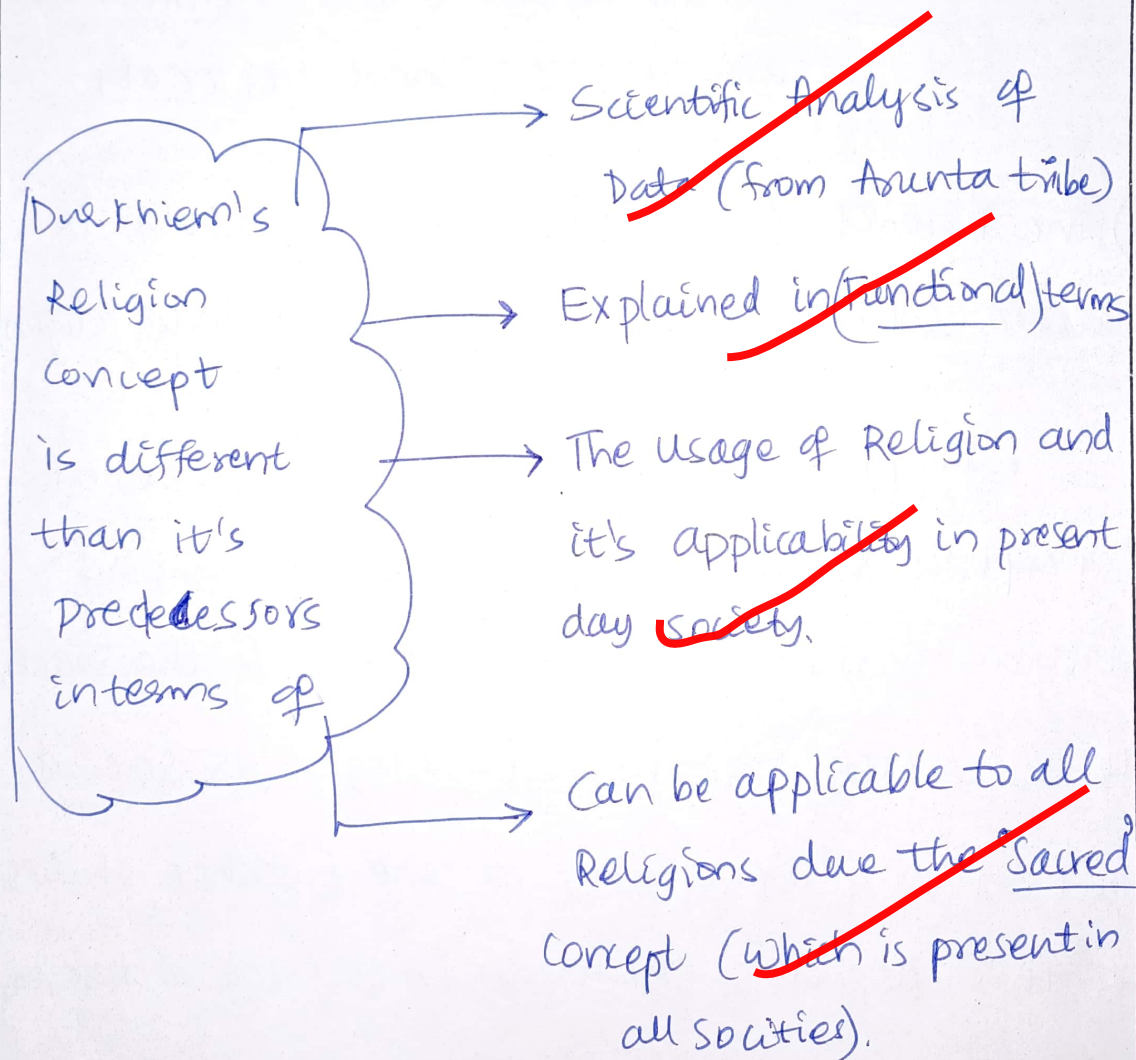 Durkhiem's
Religion
Concept
is different
than it's
Predecessors
interms of
Scientific Analysis of
Data (from Arunta tribe)
Explained in (Functional) terms
The Usage of Religion and
it's applicability in present
day society.
Can be applicable to all
Religions due the 'Sacred'
Concept (which is present in
all socities).